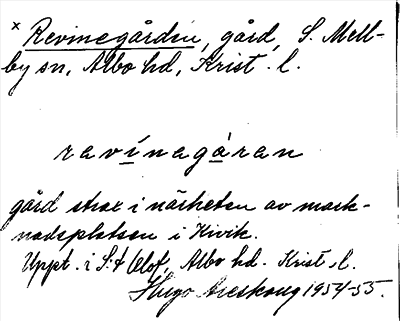 × Revinegården, gård, S. Mell-
by sn, Albo hd, Krist. l.
ravínegàran
gård strax i närheten av mark-
nadsplatsen i Kivik.
Uppt. i S:t Olof, Albo hd. Krist. l.
Hugo Areskoug 1954-55.